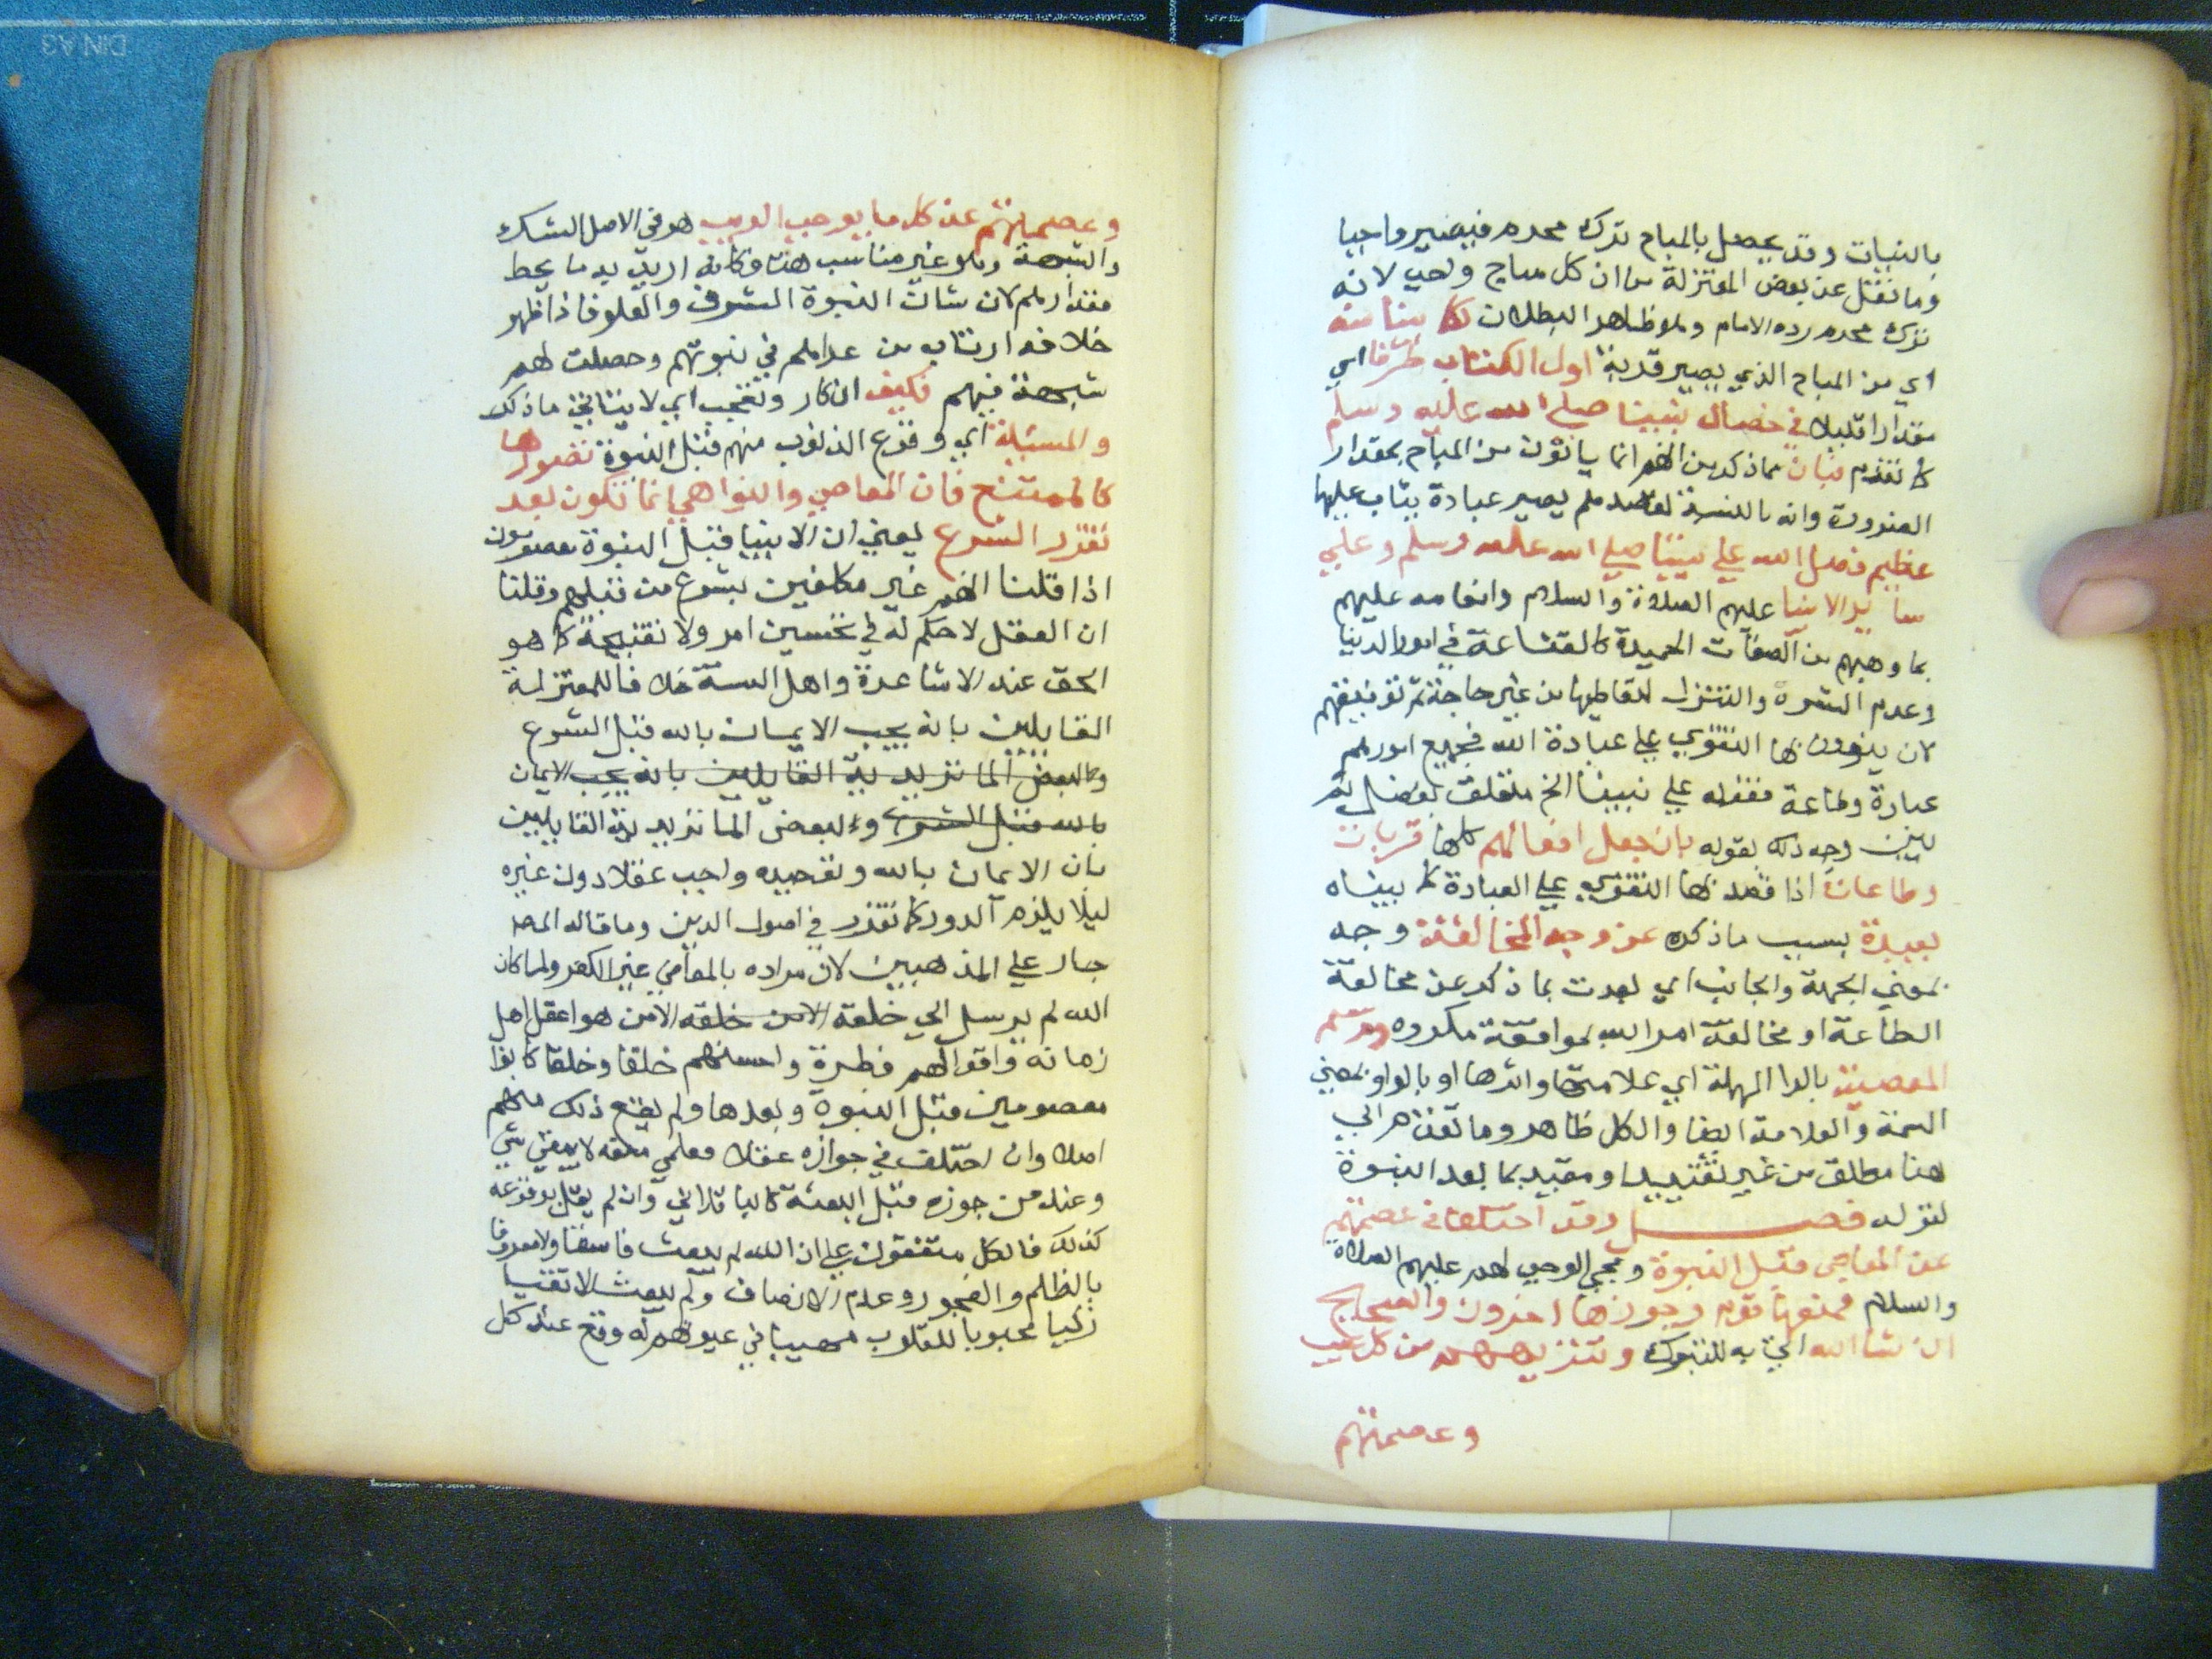 بالنيات وقد يحصل بالمباح ترك محرم فيصير واجبا
وما نقل عن بعض المعتزلة من ان كل مباح واجب لانه
ترك محرم رده الامام وهو ظاهر البطلان كما بينا منه
اي من المباح الذي يصير قربة اول الكتاب طرفا اي
مقدارا قليلا في خصال نبينا صلى الله عليه وسلم
كما تقدم فبان مما ذكر من انهم انما ياتون من المباح بمقدار
الضرورة وانه بالنسبة لمقاصدهم يصير عبادة يثاب عليها
عظيم فضل الله علي نبينا صلي الله عليه وسلم وعلي
ساير الانبيا عليهم الصلاة والسلام وانعامه عليهم
بما وهبهم من الصفات الحميدة كالقناعة في امور الدنيا
وعدم الشره والتنزل لتعاطيها من غير حاجة ثم توفيقهم
لان ينوون بها التقوي علي عبادة الله فجميع امورهم
عبادة وطاعة فقوله علي نبينا الخ متعلق بفضل ثم
بين وجه ذلك بقوله بان جعل افعالهم كلها قربات
وطاعات اذا قصد بها التقوي علي العبادة كما بيناه
بعيدة بسبب ما ذكره عن وجه المخالفة وجه
بمعني الجهة والجانب اي بعدت بما ذكر عن مخالفة
الطاعة او مخالفة امر الله بموافقة مكروه ورسم
المعصية بالرا المهملة اي علامتها واثرها او بالواو بمعني
السمة والعلامة ايضا والكل ظاهر وما تقدم الي
هنا مطلق من غير تقييد او مقيد بما بعد النبوة
لقوله فصل وقد اختلف في عصمتهم
عن المعاصي قبل النبوة ومجي الوحي لهم عليهم الصلاة
والسلام فمنعها قوم وجوزها اخرون والصحيح
ان شا الله اتي به للتبرك وتنزيههم من كل عيب
وعصمتهم
وعصمتهم عن كل ما يوجب الريب هو في الاصل الشك
والشبهة وهو غير مناسب هنا وكانه اريد به ما يحط
مقدارهم لان شان النبوة الشرف والعلو فاذا ظهر
خلافه ارتاب من عداهم في نبوتهم وحصلت لهم
شبهة فيهم فكيف انكار وتعجب اي لا يتاتي ما ذكر
والمسئلة اي وقوع الذنوب منهم قبل النبوة تصورها
كالممتنع فان المعاصي والنواهي انما تكون بعد
تقرر الشرع يعني ان الانبيا قبل النبوة معصومون
اذا قلنا انهم غير مكلفين بشرع من قبلهم وقلنا
ان العقل لا حكم له في تحسين امر ولا تقبيحه كما هو
الحق عند الاشاعرة واهل السنة خلافا للمعتزلة
القايلين بانه يجب الايمان بالله قبل الشرع
ولبعض الماتريدية القايلين بانه يجب الايمان
بالله قبل الشرع ولبعض الماتريدية القايلين
بان الايمان بالله وتوحيده واجب عقلا دون غيره
ليلا يلزم الدور كما تقرر في اصول الدين وما قاله المص
جار علي المذهبين لان مراده بالمعاصي غير الكفر ولما كان
الله لم يرسل الي خلقه الا من خلقه الا من هو اعقل اهل
زمانه واقواهم فطرة واحسنهم خلقا وخلقا كانوا
معصومين قبل النبوة وبعدها ولم يقع ذلك منهم
اصلا وان اختلف في جوازه عقلا فعلي منعه لا يبقي شي
وعند من جوزه قبل البعثة كالباقلاني وان لم يقل بوقوعه
كذلك فالكل متفقون علي ان الله لم يبعث فاسقا ولا معروفا
بالظلم والفجور وعدم الانصاف ولم يبعث الا تقيا
زكيا محبوبا للقلوب مهيبا في عيونهم له وقع عند كل